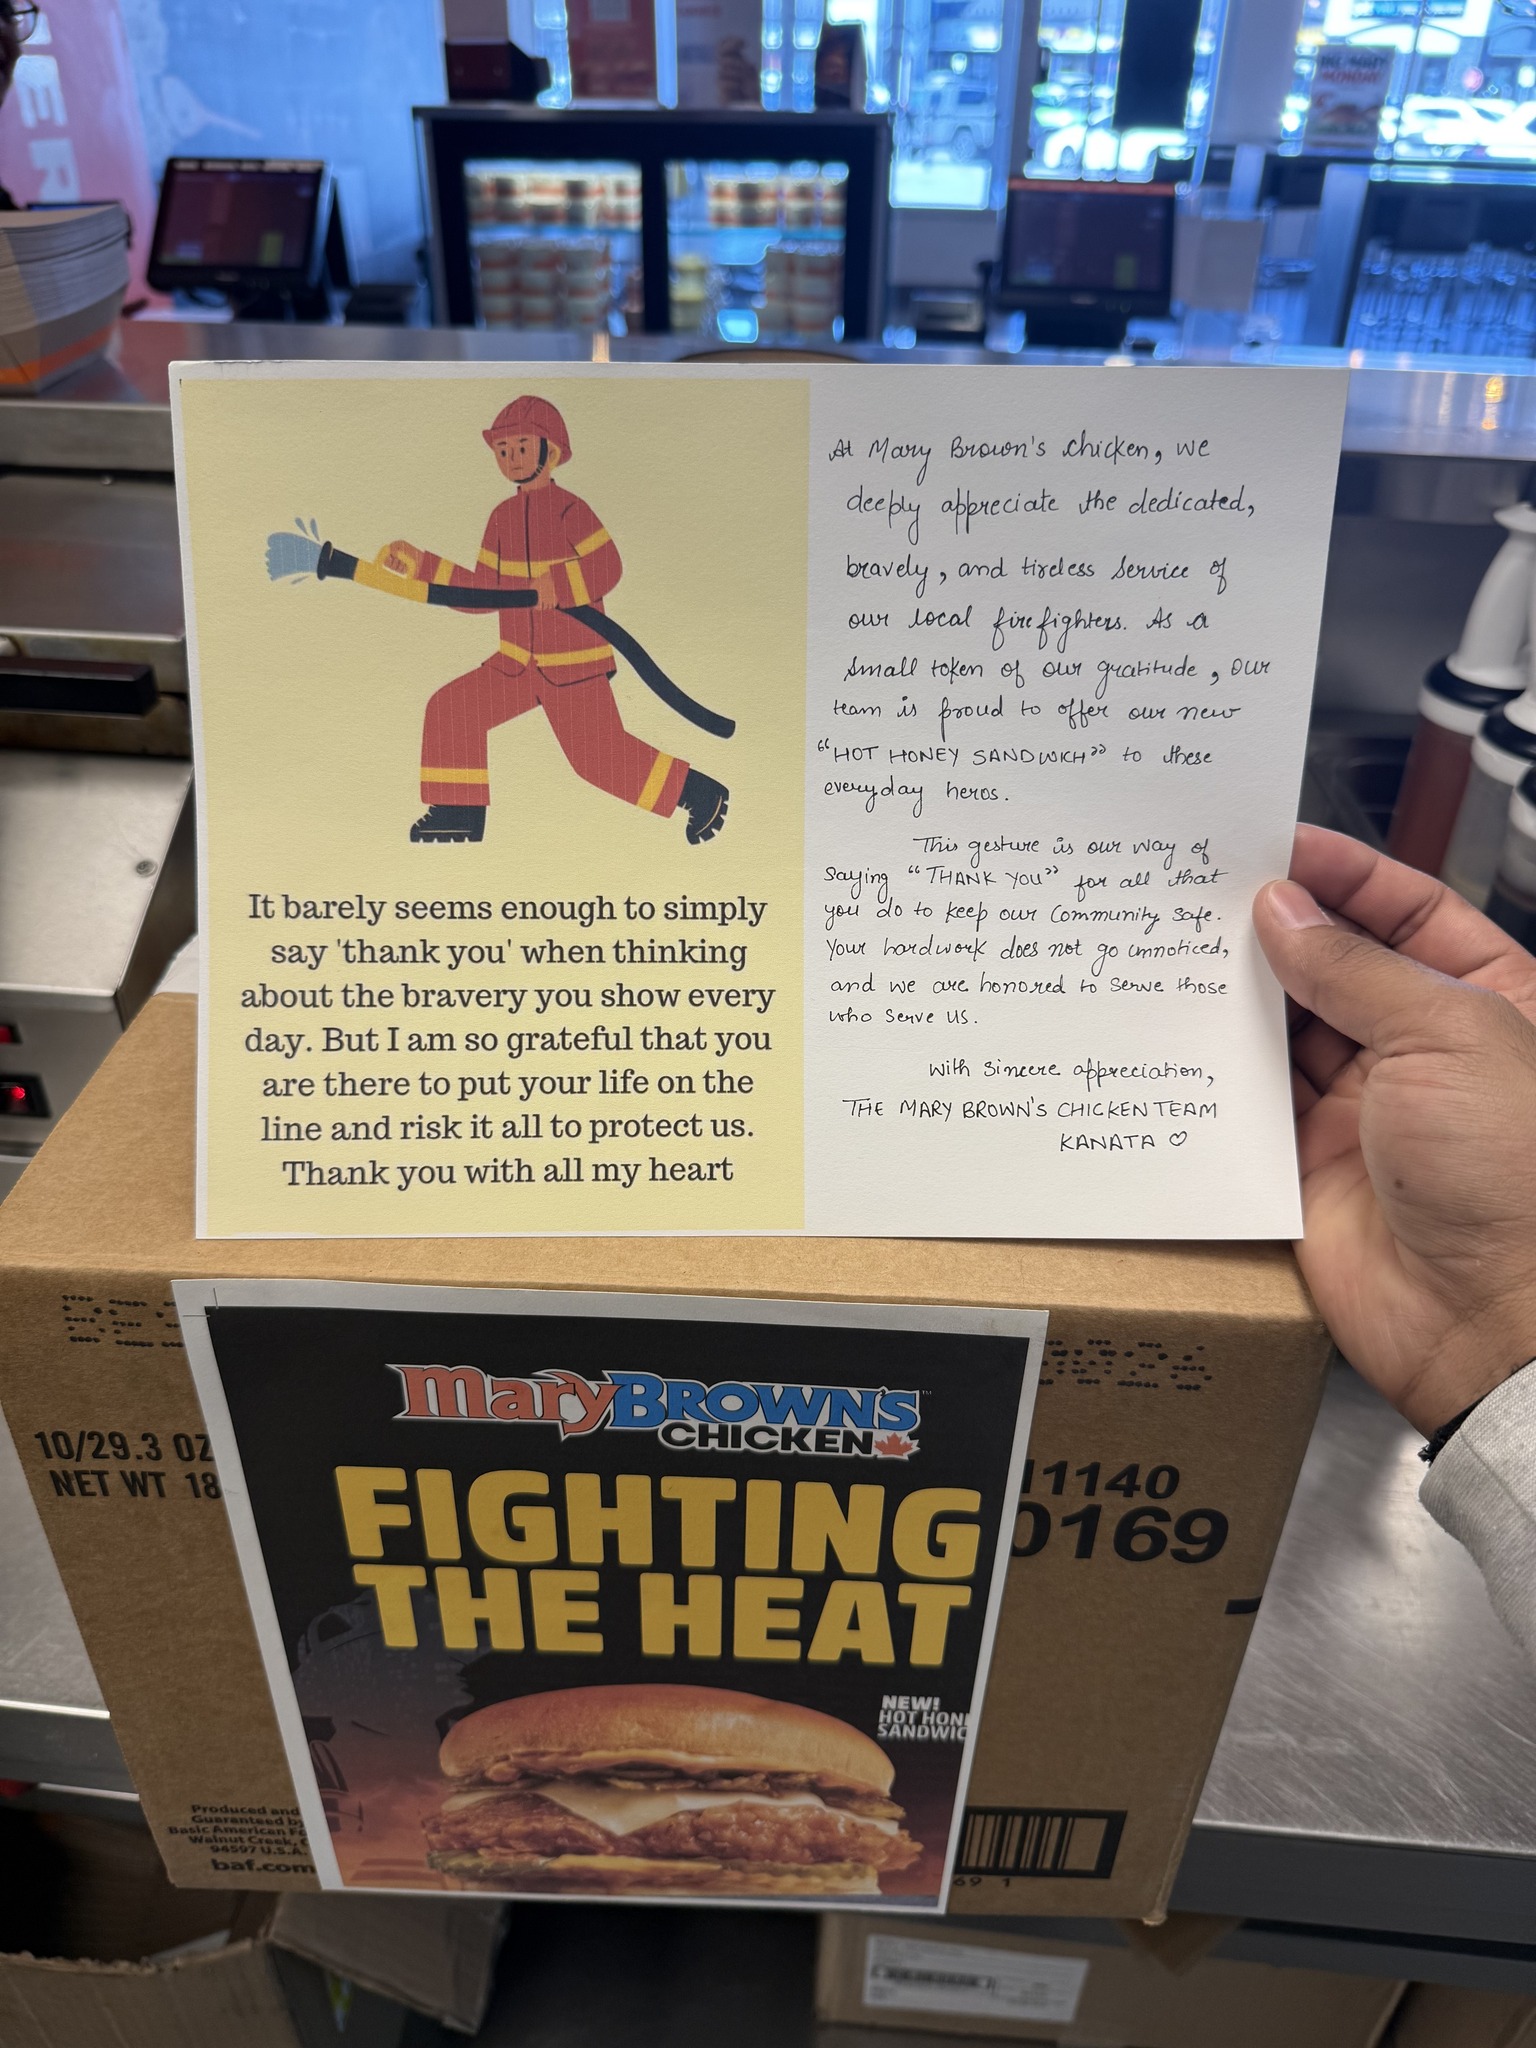 It barely seems enough to simply
say 'thank you' when thinking
about the bravery you show every
day. But I am so grateful that you
are there to put your life on the
line and risk it all to protect us.
Thank you with all my heart
At Mary Brown's chicken, we
deeply appreciate the dedicated,
bravely, and tireless service of
our local firefighters. As a
small token of our gratitude, our
team is proud to offer our new
"HOT HONEY SANDWICH" to these
everyday heros.
This gesture is our way of
saying "THANK YOU" for all that
you do to keep our community safe.
Your hardwork does not go unnoticed,
and we are honored to serve those
who serve us.
with sincere appreciation,
THE MARY BROWN'S CHICKEN TEAM
KANATA ♡
MaryBROWN'S™
CHICKEN
FIGHTING
THE HEAT
NEW!
HOT HON
SANDWIC
10/29.3 OZ
NET WT 18
11140
0169
Produced and
Guaranteed by
Basic American Fo
Walnut Creek, C
94597 U.S.A.
baf.com
69 1